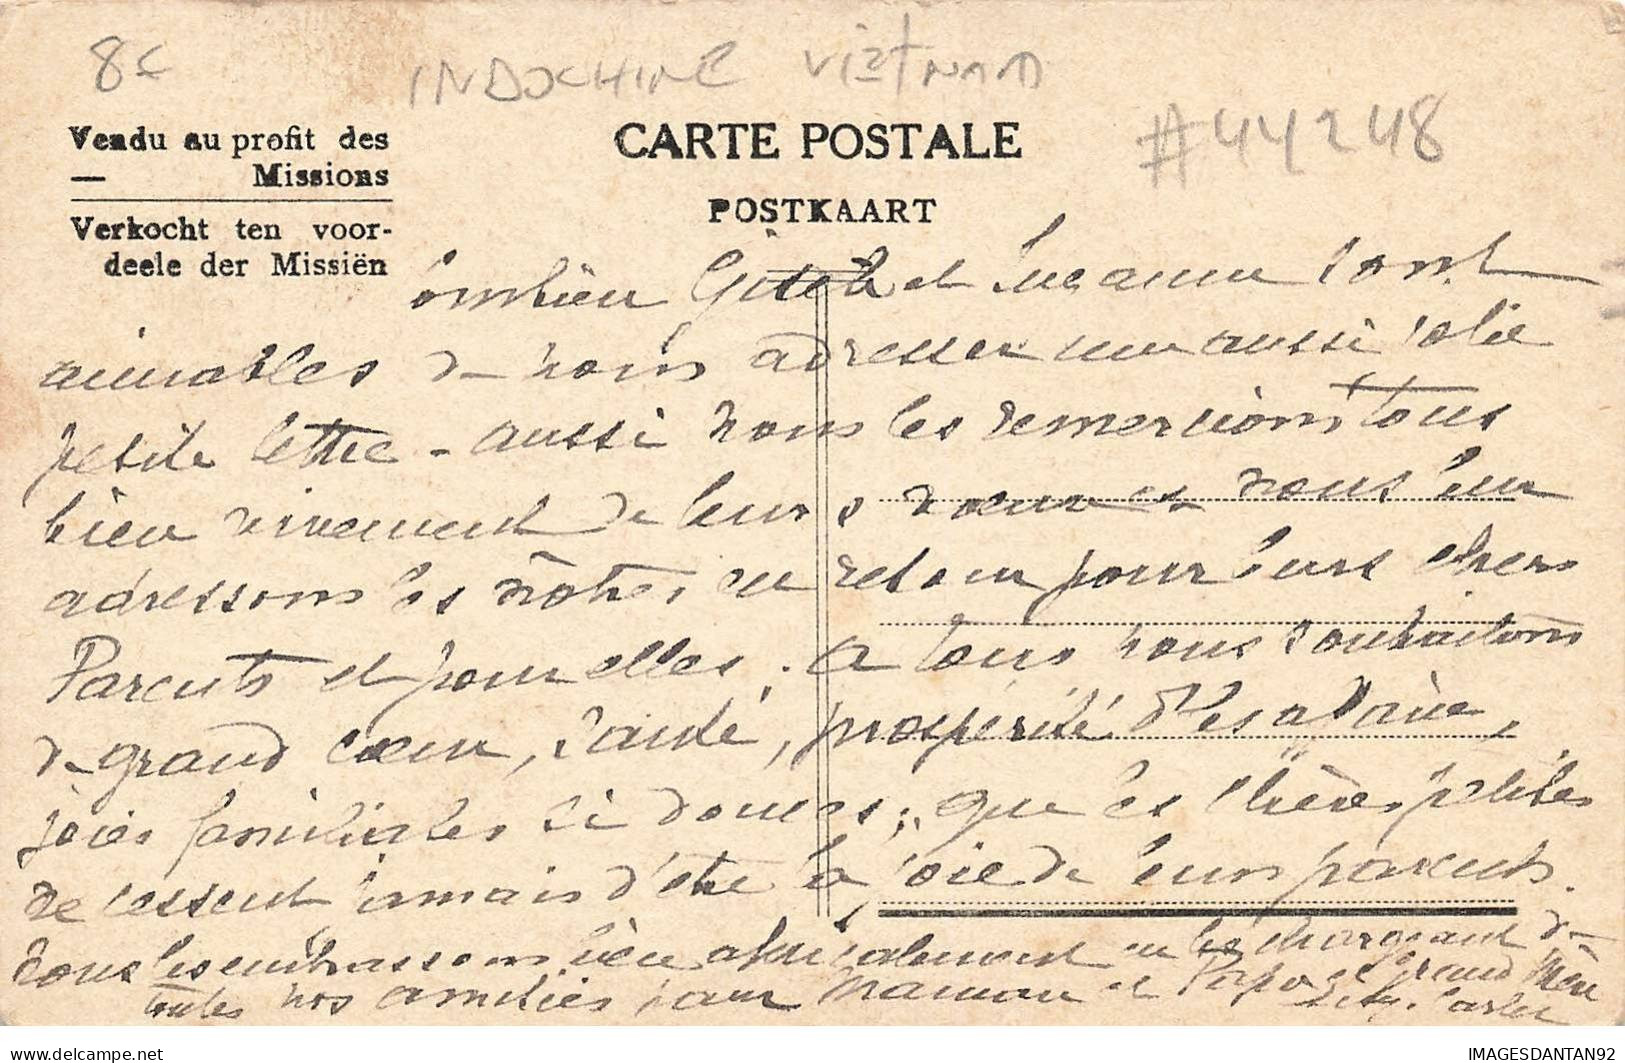 8€
INDOCHINE VIETNAM
#44248
Vendu au profit des
— Missions
Verkocht ten voor-
deele der Missiën
CARTE POSTALE
POSTKAART
Combien Gisèle et Suzanne sont
aimables de nous adresser une aussi jolie
petite lettre - aussi nous les remercions tous
bien vivement de leurs voeux et nous leur
adressons les nôtres en retour pour leurs chers
Parents et pour elles. A tous nous souhaitons
de grand cœur, santé, prospérité
joies familiales si douces; que les chères petites
ne cessent jamais d'être la joie de leurs parents.
Nous les embrassons bien affectueusement en les chargeant de
toutes nos amitiés pour Maman et Papa et Grand Mère
delcampe.net
IMAGESDANTAN92